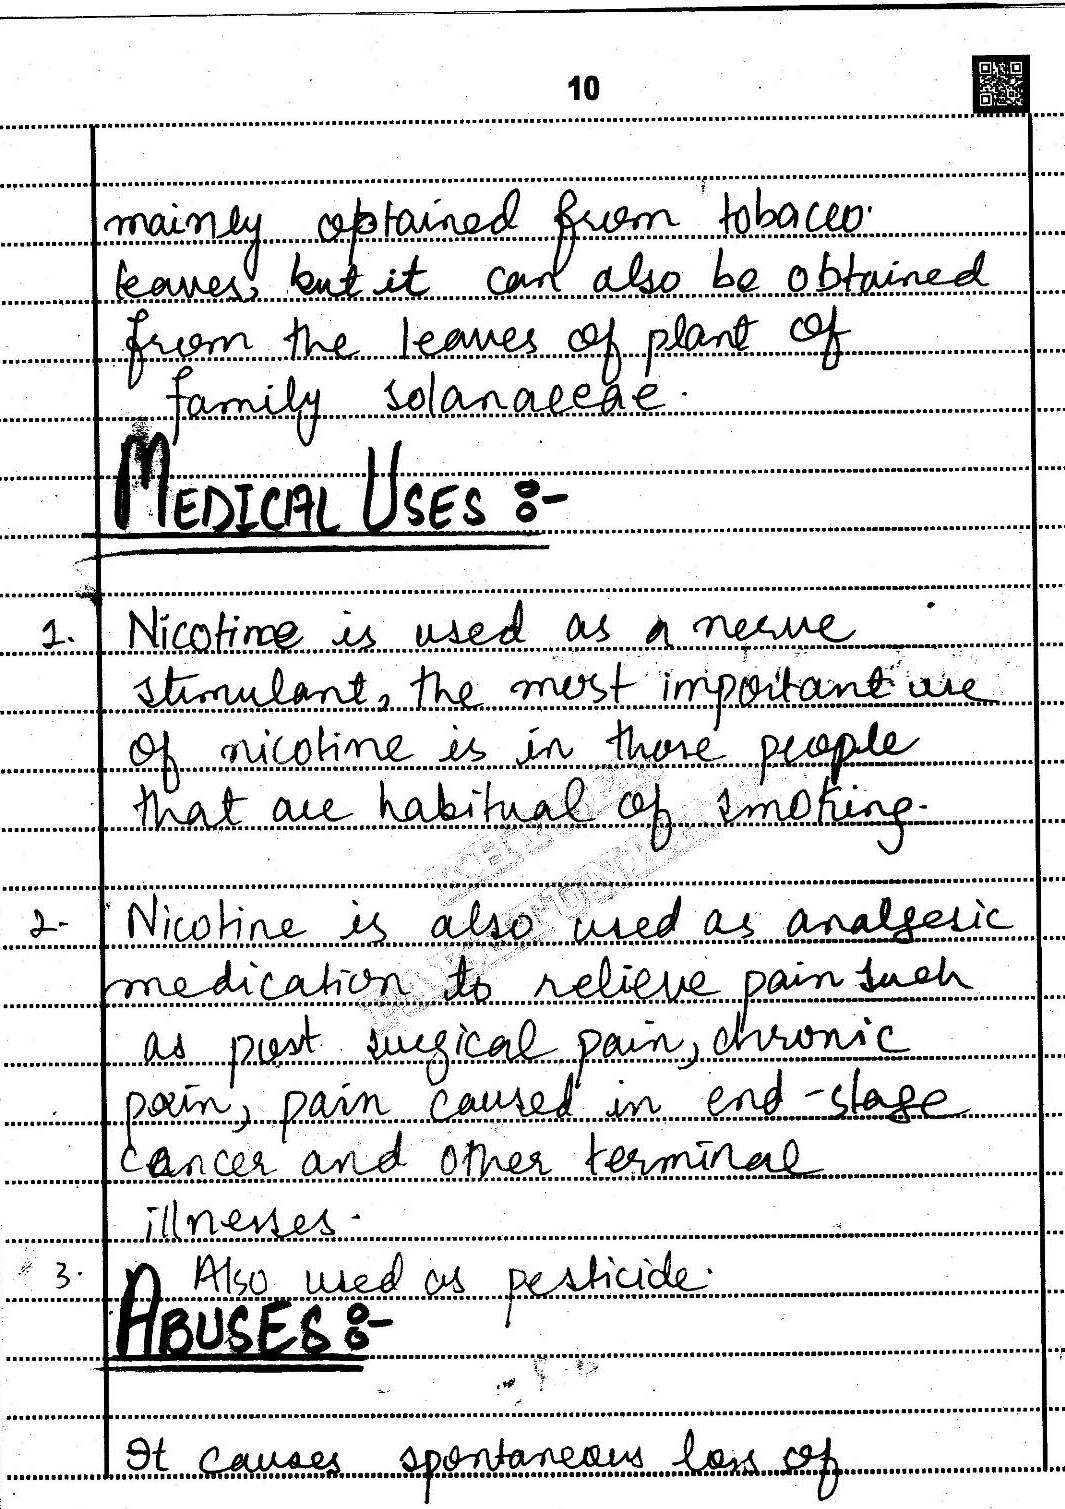 10
mainly obtained from tobacco
leaves, but it can also be obtained
from the leaves of plant of
family solanaceae.
MEDICAL USES :-
1. Nicotine is used as a nerve
stimulant, the most important use
of nicotine is in those people
that are habitual of smoking.
2- Nicotine is also used as analgesic
medication to relieve pain such
as post surgical pain, chronic
pain, pain caused in end-stage
cancer and other terminal
illnesses.
3. Also used as pesticide.
ABUSES :-
It causes spontaneous loss of